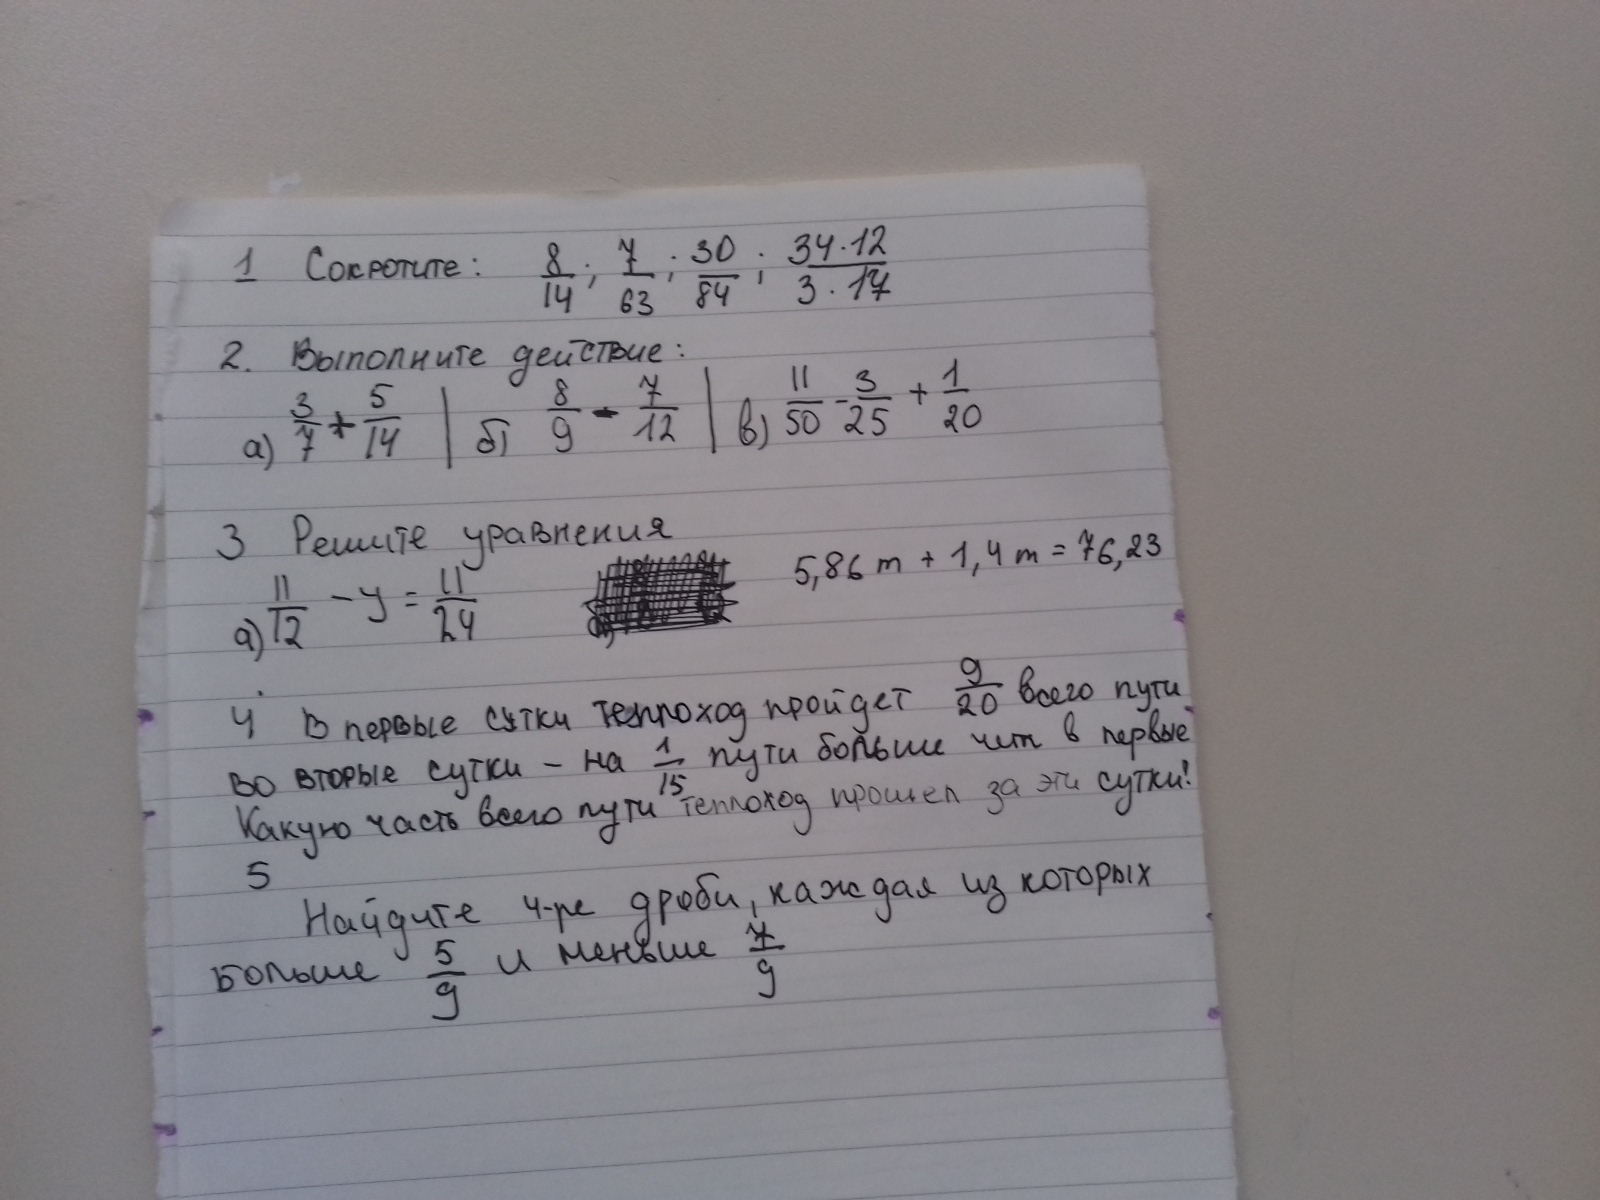 1 Сокротите: 8/14; 7/63; 30/84; 34·12/3·17
2. Выполните действие:
а) 3/7 + 5/14 | б) 8/9 - 7/12 | в) 11/50 - 3/25 + 1/20
3 Решите уравнения
а) 11/12 - y = 11/24 5,86m + 1,4m = 76,23
4 В первые сутки теплоход пройдет 9/20 всего пути
Во вторые сутки - на 1/15 пути больше чем в первые
Какую часть всего пути теплоход прошел за эти сутки!
5
Найдите 4-ре дроби, каждая из которых
больше 5/9 и меньше 7/9